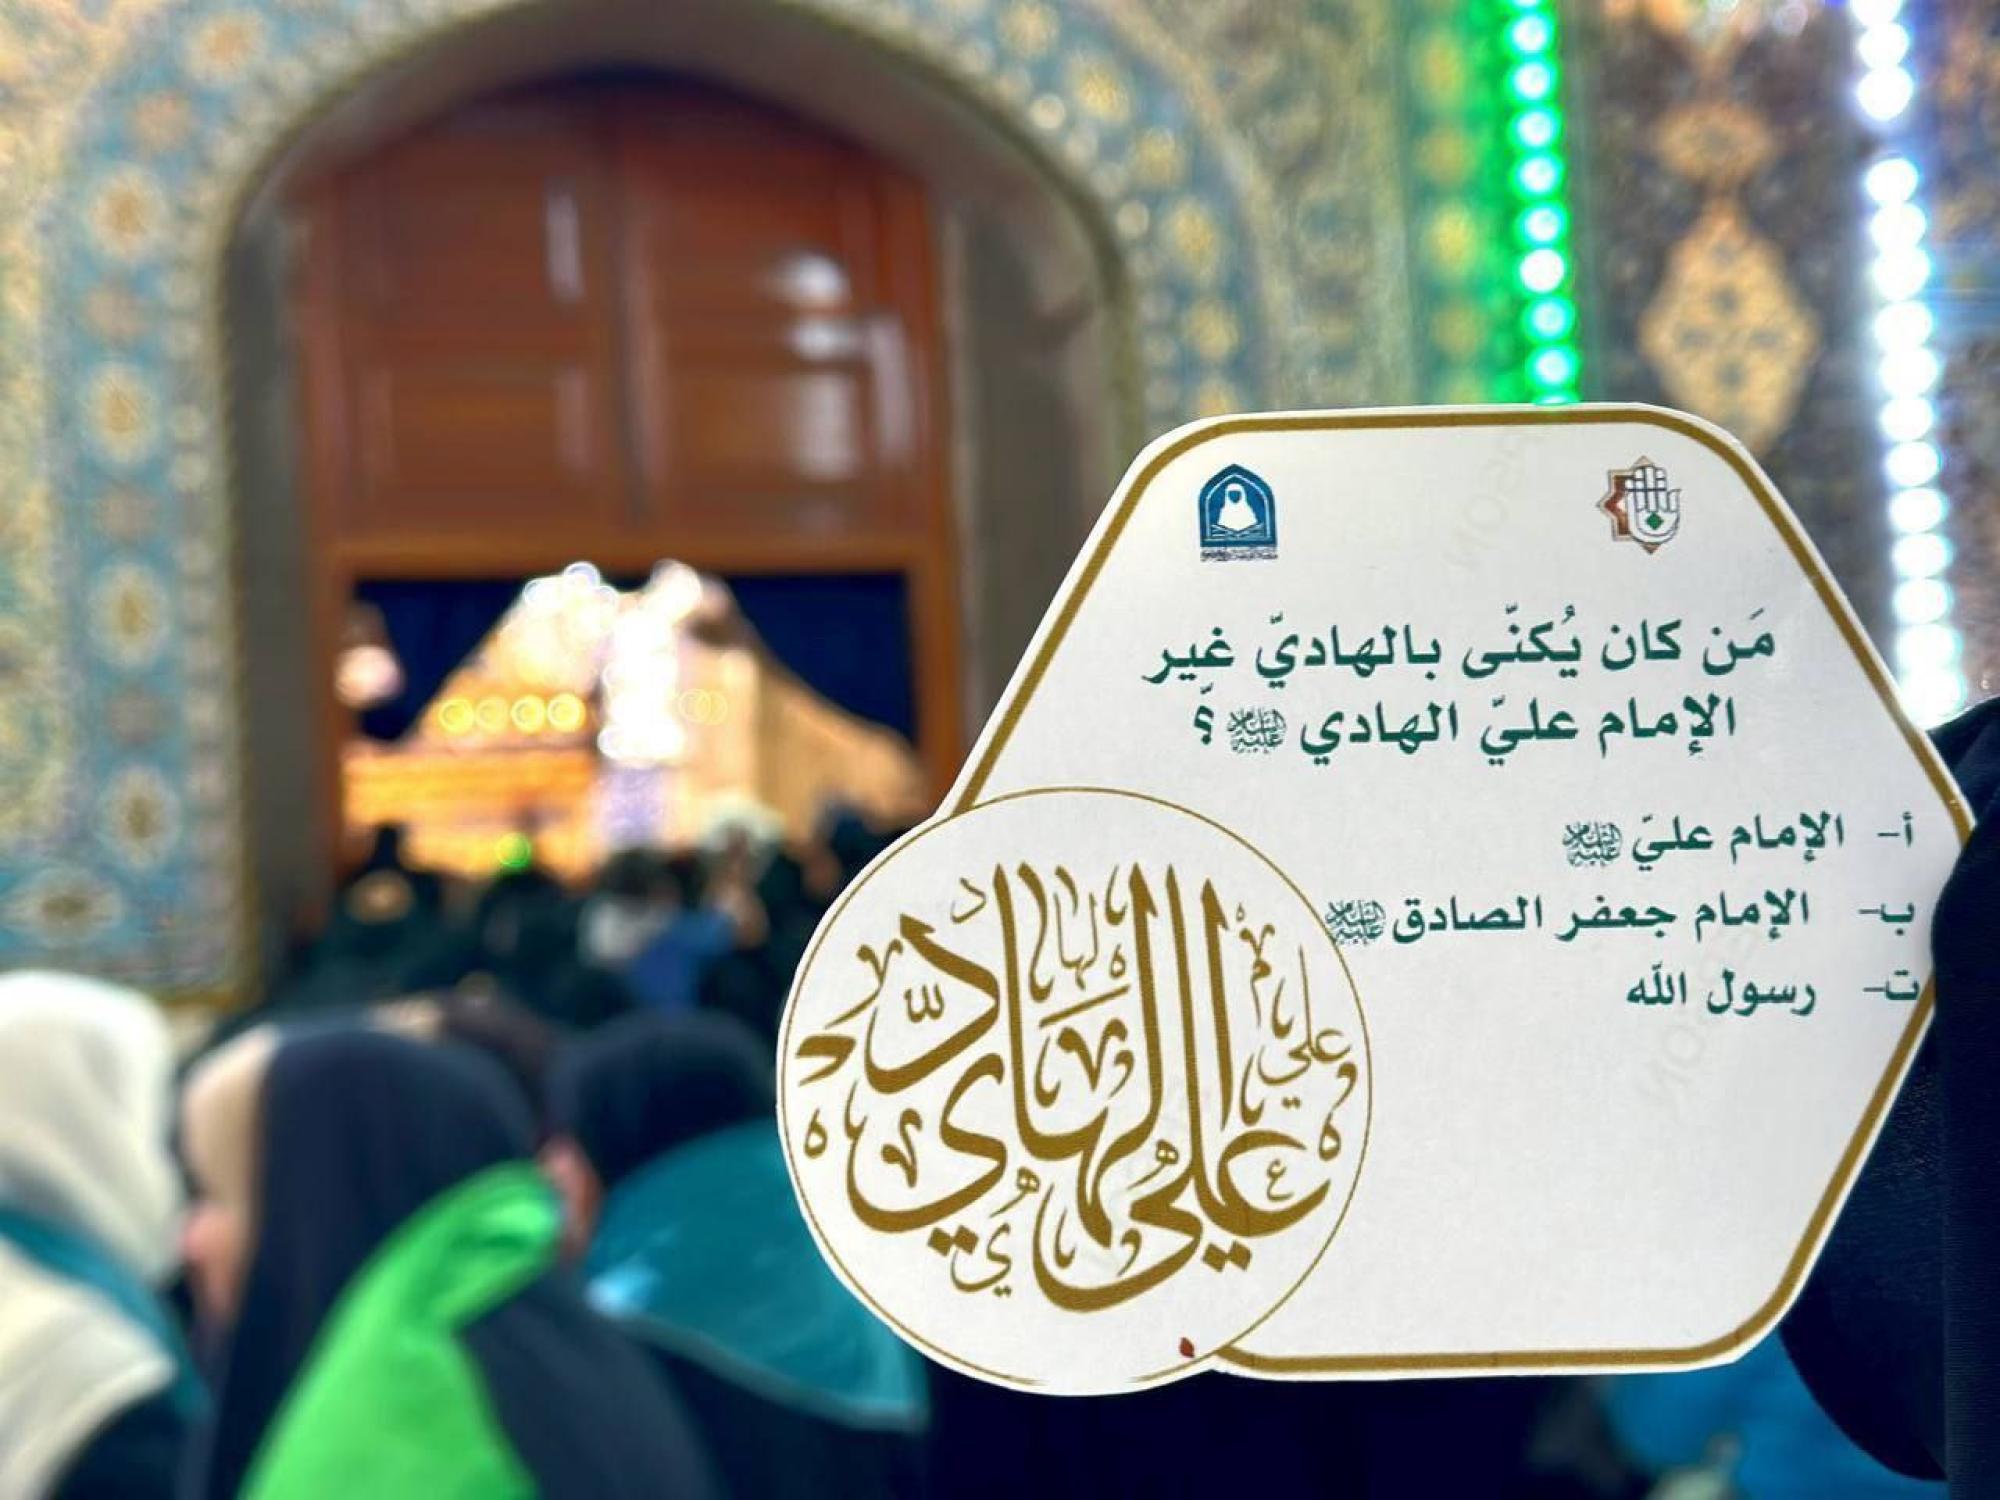 مَن كان يُكنّى بالهاديّ غير
الإمام عليّ الهادي عليه السلام ؟
أ- الإمام عليّ عليه السلام
ب- الإمام جعفر الصادق عليه السلام
ت- رسول الله
علي الهادي